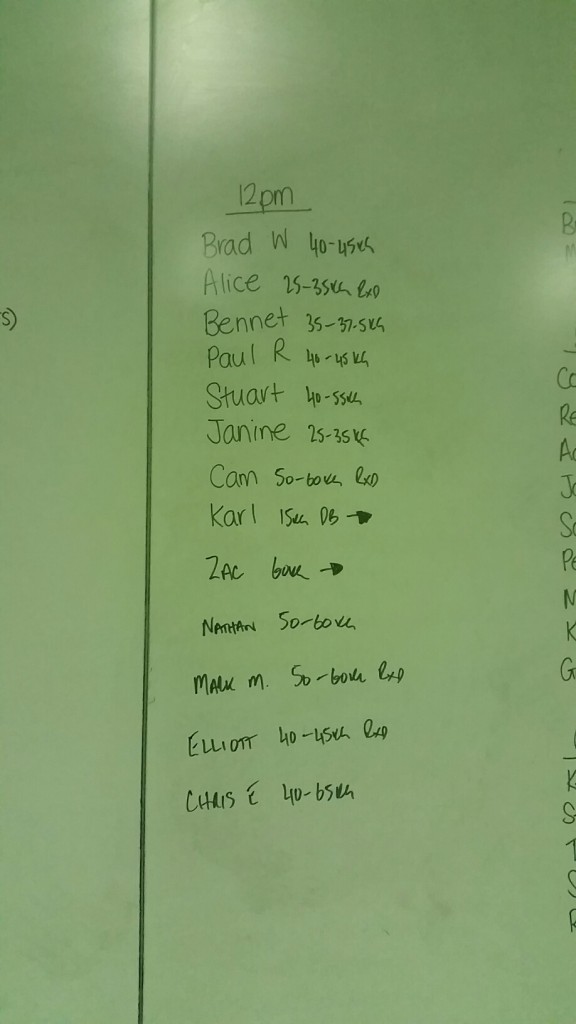 s)
12pm
Brad W 40-45KG
Alice 25-35KG RxD
Bennet 35-37.5KG
Paul R 40-45KG
Stuart 40-55KG
Janine 25-35KG
Cam 50-60KG RxD
Karl 15KG DB →
ZAC 60KG →
NATHAN 50-60KG
MARK M. 50-60KG RxD
ELLIOTT 40-45KG RxD
CHRIS E 40-65KG